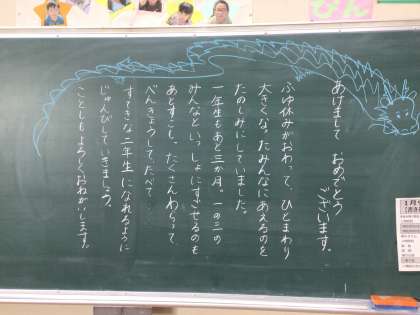 あけまして おめでとう
ございます。
ふゆ休みがおわって、ひとまわり
大きくな。たみんなにあえるのを
たのしみにしていました。
一年生もあと三か月。一の三の
みんなといっしょにすごせるのも
あとすこし。たくさんわらって
べんきょうして、たべて…
すてきな二年生になれるように
じゅんびしていきましょう。
ことしもよろしくおねがいします。